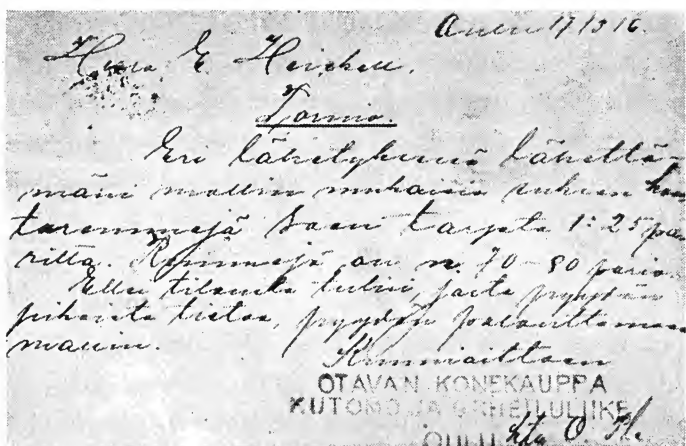 17/3 16.
Herra E. Heickell.
Tornio.
Eri lähetyksenä lähettä-
mäni mallin mukaisia suksen
saan tarjota 1:25 pa-
rilta. on n. 70-80 paria.
Ellei tilausta tulisi, josta pyydän
pikaista tietoa, pyydän palauttamaan
mallin.
Kunnioittaen
OTAVAN KONEKAUPPA
KUTOMO JA URHEILULIIKE
OULU